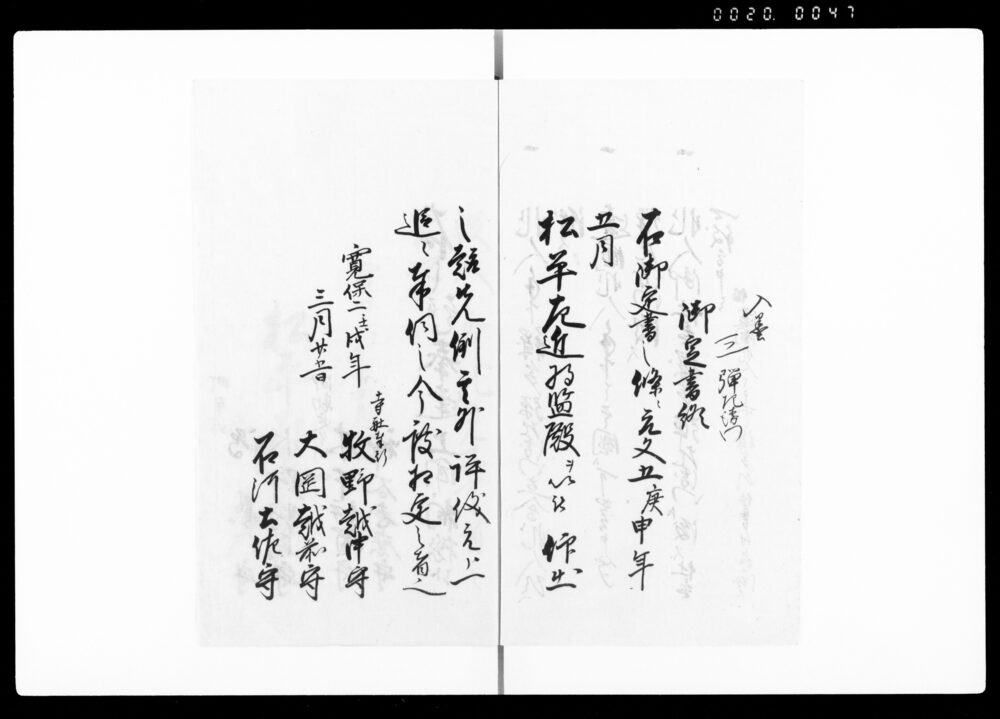 0020. 0047
入墨
三 弾左衛門
御定書終
右御定書之條々元文五庚申年
五月
松平左近将監殿を以被 仰出
之趣先例其外評儀之上
追々奉伺之今被相定之者也
寛保二壬戌年
三月廿
寺社奉行
牧野越中守
大岡越前守
石河土佐守